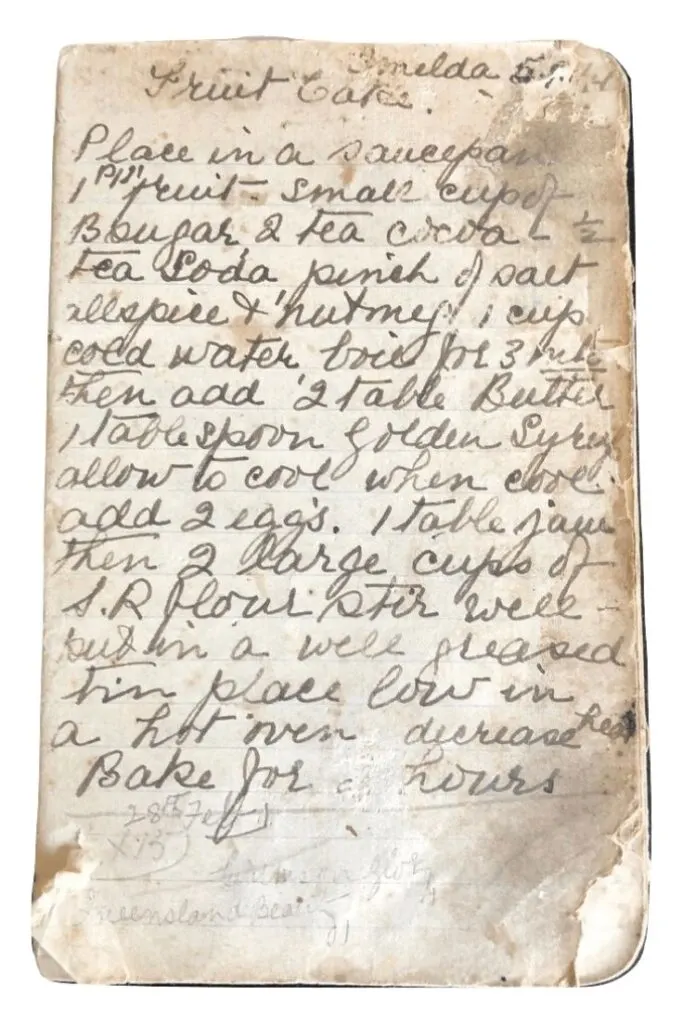 Imelda
Fruit Cake.
Place in a saucepan
1 fruit. small cup of
B sugar, 2 tea cocoa - ½
tea Soda pinch of salt
allspice & nutmeg. 1 cup
cold water boil for 3
then add 2 table Butter
1 tablespoon golden Syrup
allow to cool when cool.
add 2 eggs. 1 table jam
then 2 large cups of
S.R flour stir well -
put in a well greased
tin place low in
a hot oven decrease heat
Bake for hours
28th
Queensland